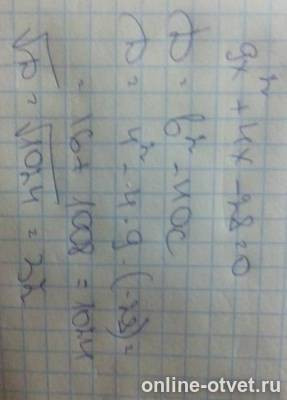 9x² + 4x - 28 = 0
D = b² - 4ac
D = 4² - 4 · 9 · (-28) =
= 16 + 1008 = 1024
√D = √1024 = 32
online-otvet.ru